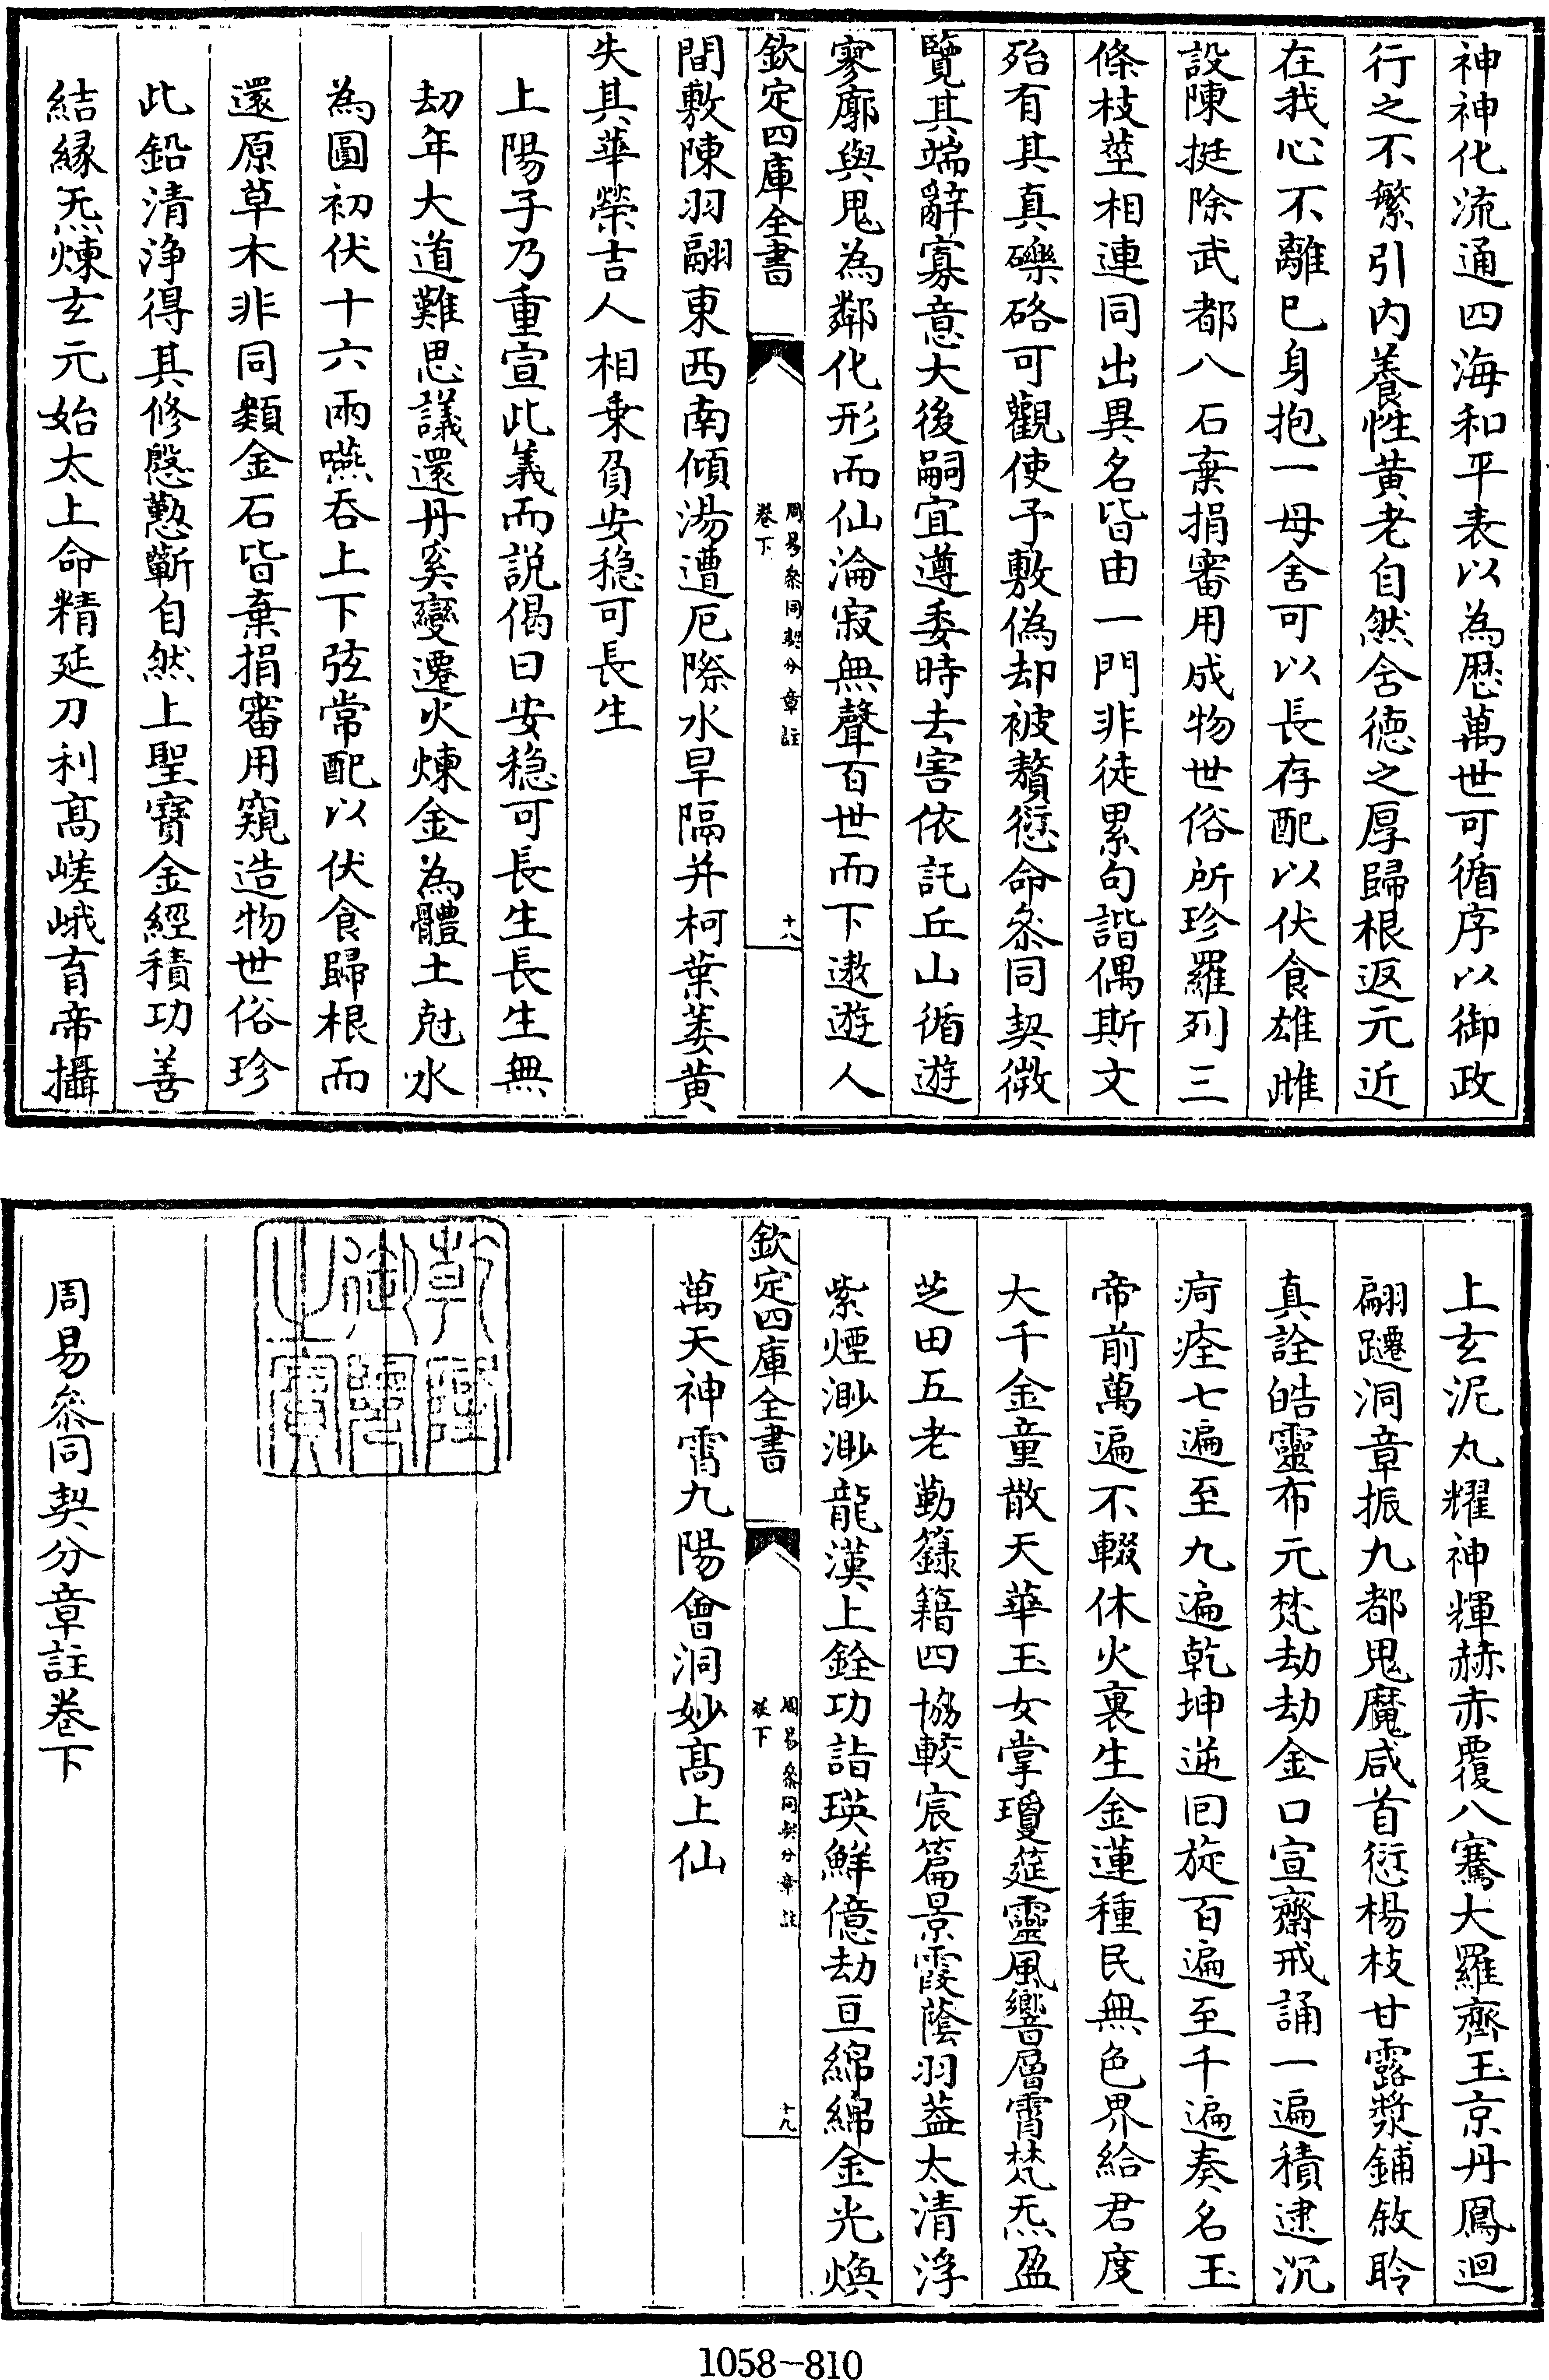 神神化流通四海和平表以為厯萬世可循序以御政
行之不繁引内養性黄老自然含德之厚歸根返元近
在我心不離已身抱一毋舍可以長存配以伏食雄雌
設陳挺除武都八石棄捐審用成物世俗所珍羅列三
條枝莖相連同出異名皆由一門非徒累句諧偶斯文
殆有其真礫硌可觀使予敷偽却被贅愆命叅同契微
覽其端辭寡意大後嗣宜遵委時去害依託丘山循遊
寥廓與鬼為鄰化形而仙淪寂無聲百世而下遨遊人
欽定四庫全書
周易叅同契分章註
卷下
十八
間敷陳羽翮東西南傾湯遭厄際水旱隔并柯葉萎黄
失其華榮吉人相乗負安穏可長生
上陽子乃重宣此義而説偈曰安穏可長生長生無
劫年大道難思議還丹奚變遷火煉金為體土尅水
為圓初伏十六兩嚥吞上下弦常配以伏食歸根而
還原草木非同類金石皆棄捐審用窺造物世俗珍
此鉛清浄得其修慇懃蘄自然上聖寶金經積功善
結縁炁煉玄元始太上命精延刀利髙嵯峨育帝攝
上玄泥丸耀神輝赫赤覆八騫大羅齊玉京丹鳳迴
翮躚洞章振九都鬼魔咸首愆楊枝甘露漿鋪敘聆
真詮皓靈布元梵劫劫金口宣齋戒誦一遍積逮沉
疴痊七遍至九遍乾坤逆囘旋百遍至千遍奏名玉
帝前萬遍不輟休火裏生金蓮種民無色界給君度
大千金童散天華玉女掌瓊筵靈風響層霄梵炁盈
芝田五老勤籙籍四協較宸篇景霞蔭羽葢太清浮
紫煙渺渺龍漢上銓功詣瑛鮮億劫亘綿綿金光煥
欽定四庫全書
周易叅同契分章註
卷下
十九
萬天神霄九陽會洞妙髙上仙
乾隆御覽之寶
周易叅同契分章註卷下
1058-810